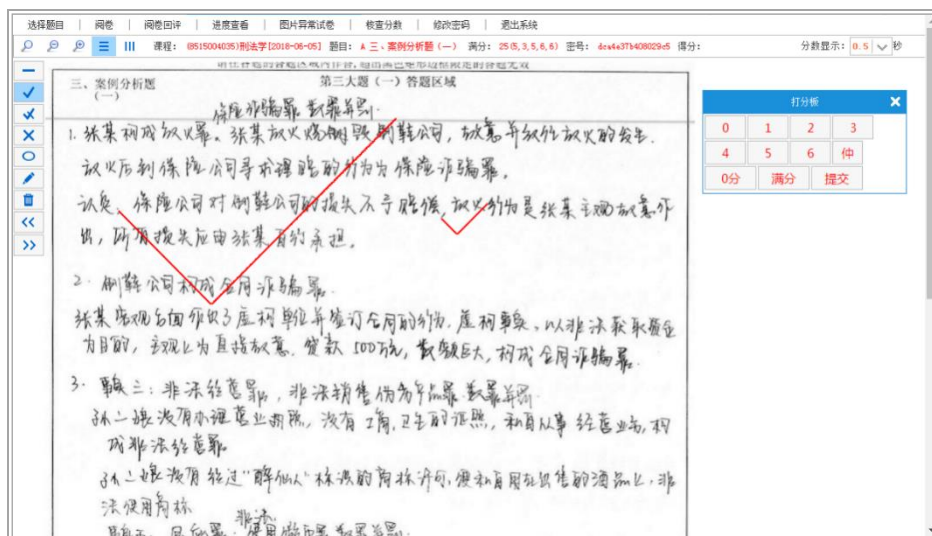 选择题目 | 阅卷 | 阅卷回评 | 进度查看 | 图片异常试卷 | 核查分数 | 修改密码 | 退出系统
课程: (8515004035)刑法学[2018-06-05] 题目: A 三、案例分析题(一) 满分: 25(5,3,5,6,6) 密号: dca4e37b408029c5 得分: 分数显示: 0.5 秒
请在各题的答题区域内作答,超出黑色矩形边框限定的答题无效
三、案例分析题
(一)
第三大题(一)答题区域
打分板
0 1 2 3
4 5 6 仲
0分 满分 提交
保险诈骗罪 数罪并罚.
1. 张某构成放火罪。张某放火烧毁制鞋公司,故意并放任放火的发生.
放火后到保险公司寻求理赔的行为为保险诈骗罪。
保险公司对制鞋公司的损失不予赔偿,放火行为是张某主观故意作
出,所有损失应由张某自行承担。
2. 制鞋公司构成合同诈骗罪.
张某客观方面作出了虚构单位并签订合同的行为,虚构事实,以非法获取资金
为目的,主观上为直接故意.贷款500万元,数额巨大,构成合同诈骗罪.
3. 事实三:非法经营罪,非法销售伪劣产品罪.数罪并罚.
孙二娘没有办理营业执照,没有工商,卫生的证照,私自从事经营业务,构
成非法经营罪.
孙二娘没有经过"醉仙人"标识的商标许可,便私自用在出售的酒品上,非
法使用商标
非法